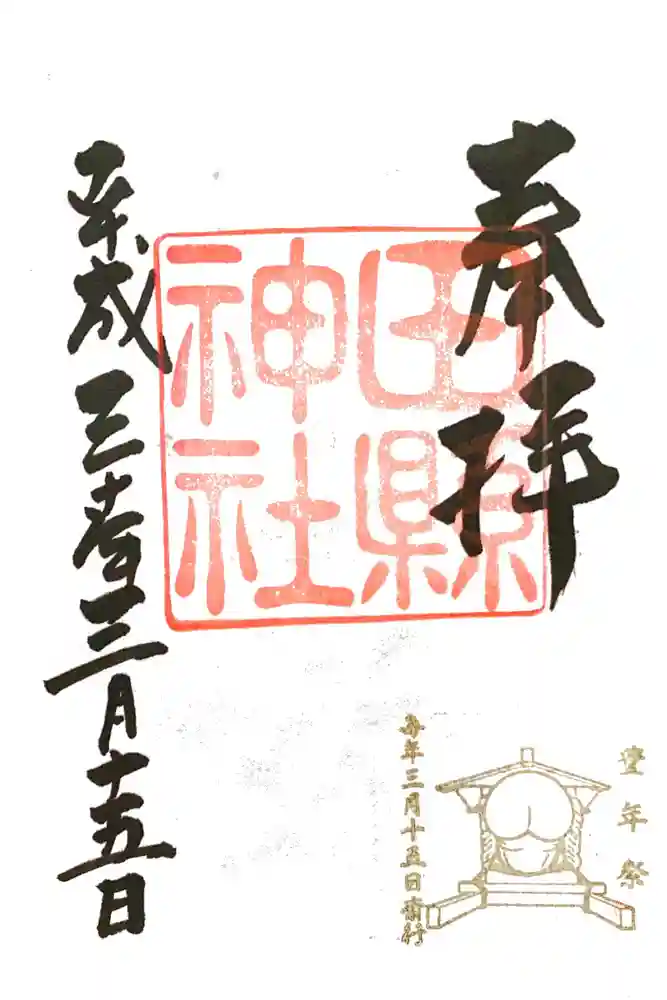 奉拝
田縣
神社
平成三十年三月十五日
豊年祭
毎年三月十五日斎行